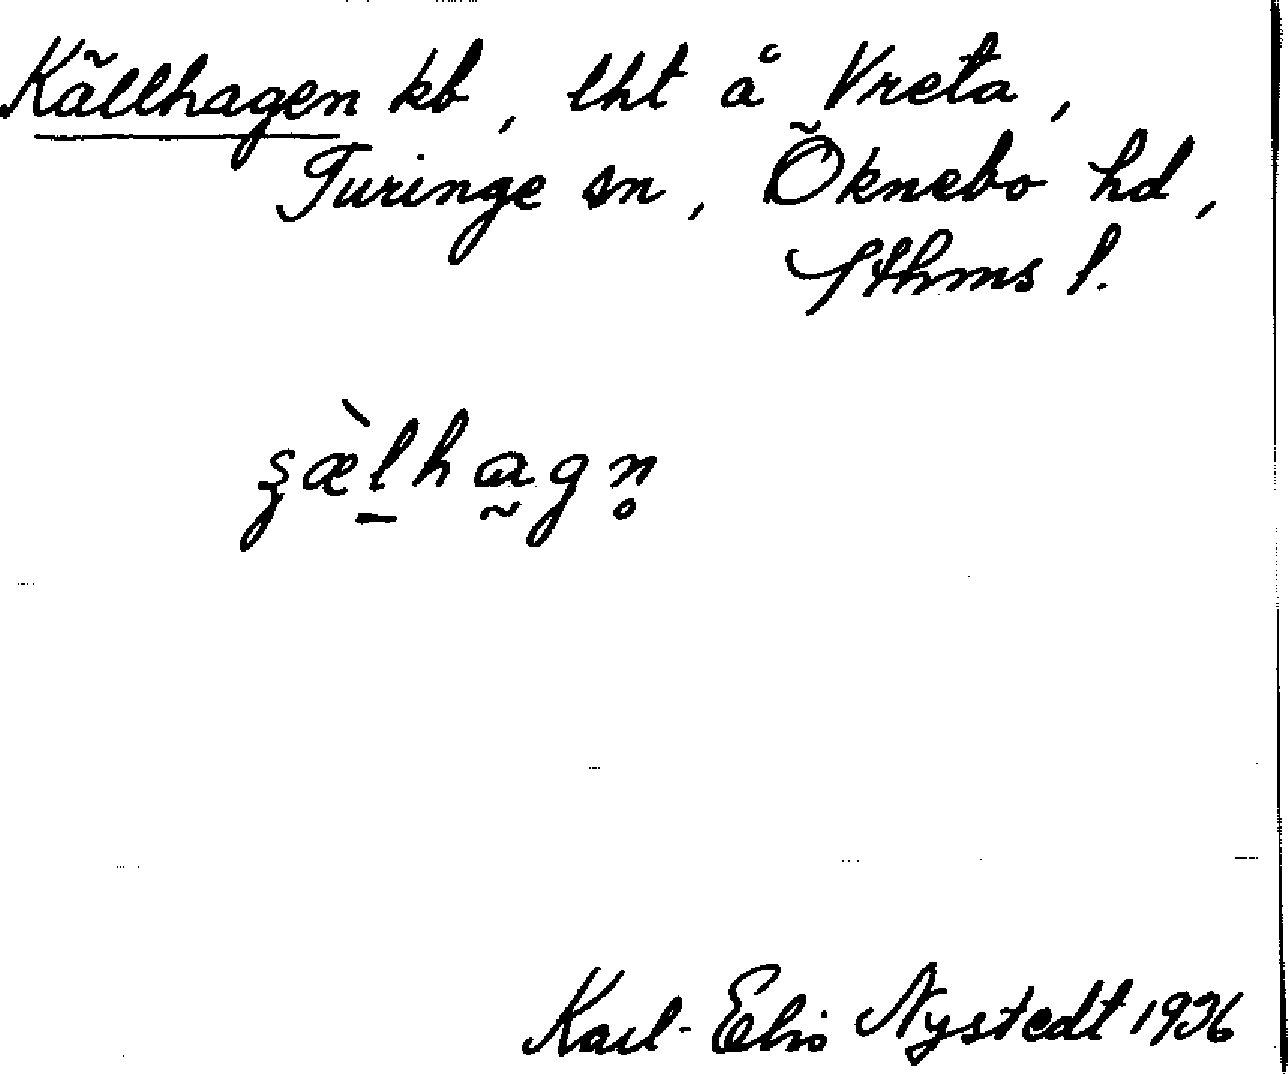 Källhagen kb, lht å Vreta,
Turinge sn, Öknebo hd,
Sthms l.
Karl-Elis Nystedt 1936